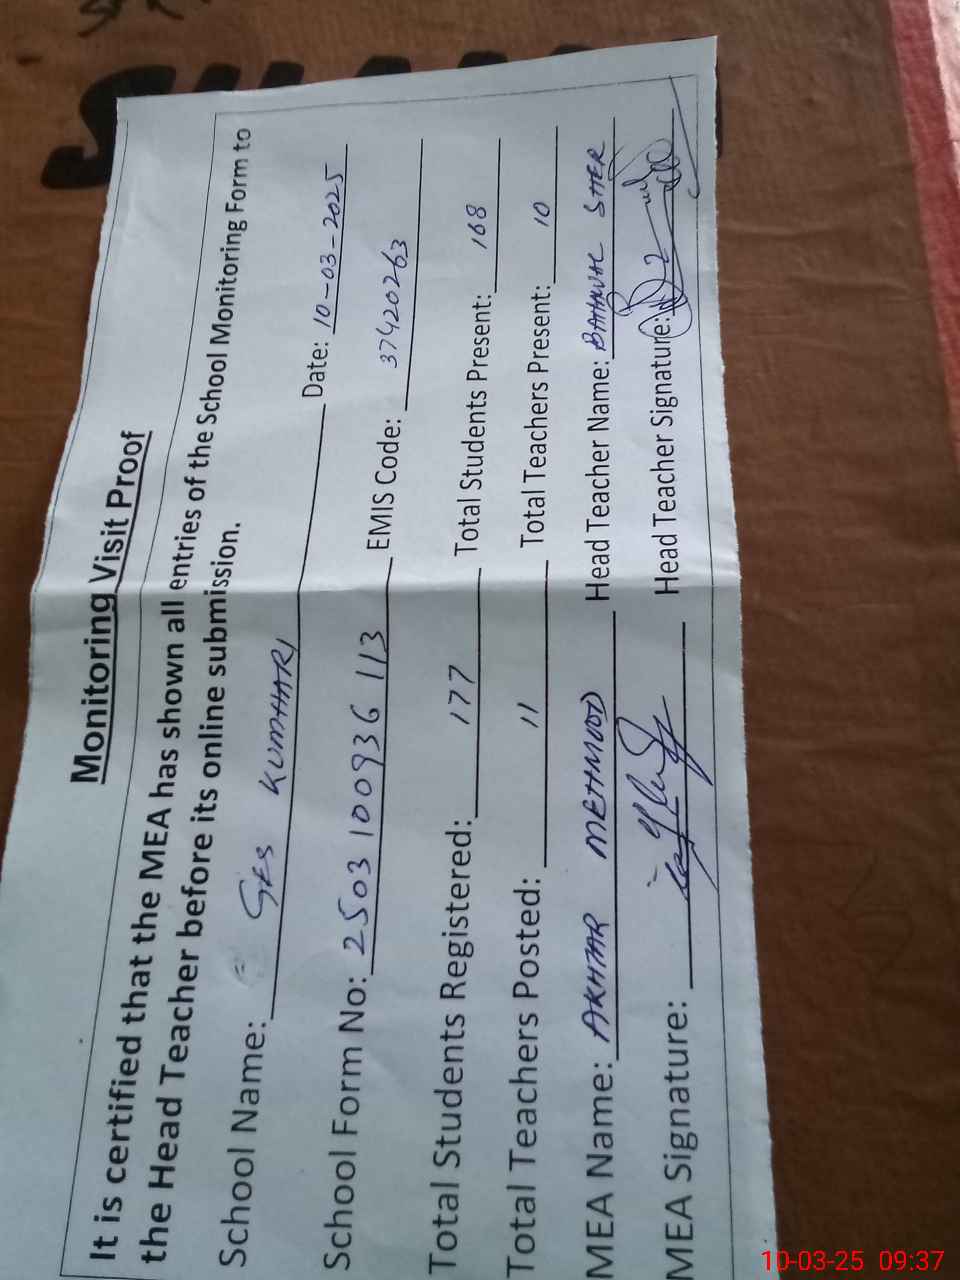 Monitoring Visit Proof
It is certified that the MEA has shown all entries of the School Monitoring Form to
the Head Teacher before its online submission.
School Name: GES KUMHARI Date: 10-03-2025
School Form No: 2503 100936 113 EMIS Code: 37420263
Total Students Registered: 177 Total Students Present: 168
Total Teachers Posted: 11 Total Teachers Present: 10
MEA Name: AKHTAR MEHMOOD Head Teacher Name: SHER
MEA Signature: Head Teacher Signature:
10-03-25 09:37